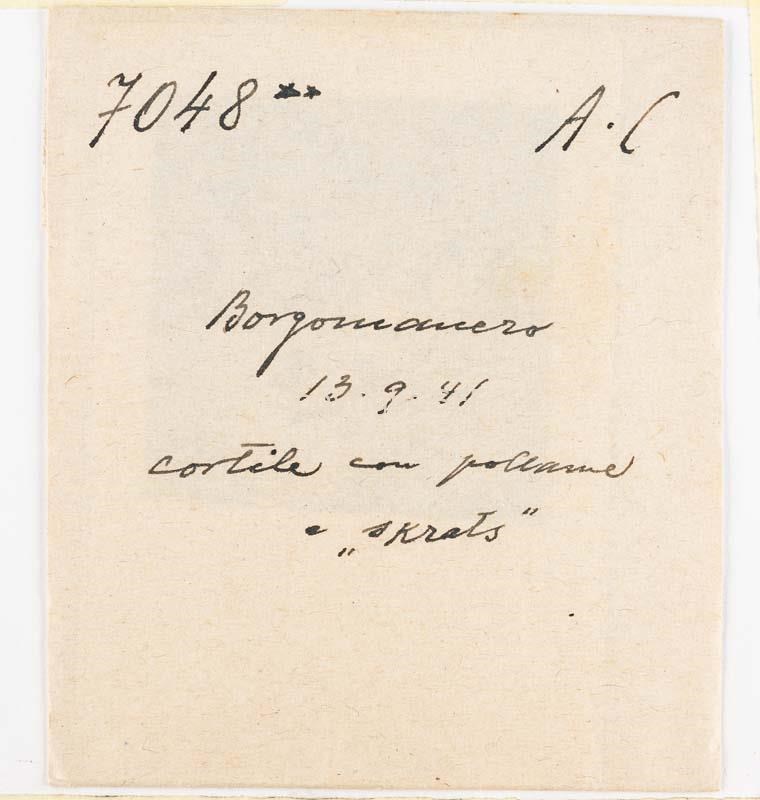 7048** A.C
Borgomanero
13.9.41
cortile con pollame
e „skrats"